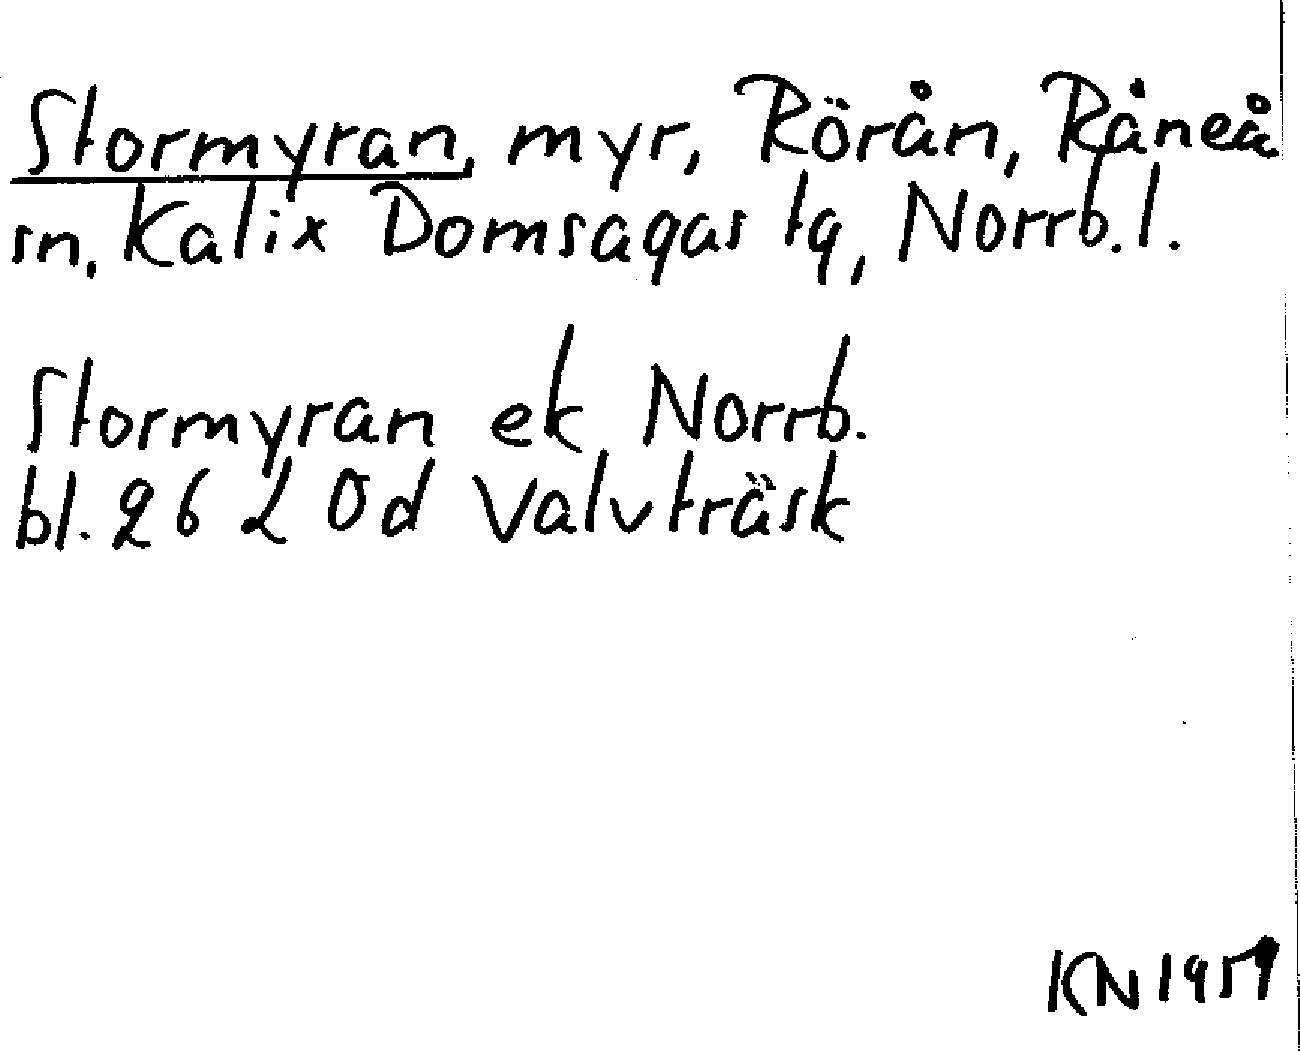 Stormyran, myr, Rörån, Råneå
sn, Kalix Domsagas tg, Norrb. l.
Stormyran ek Norrb.
bl. 26 L 0d Valvträsk
KN 1959